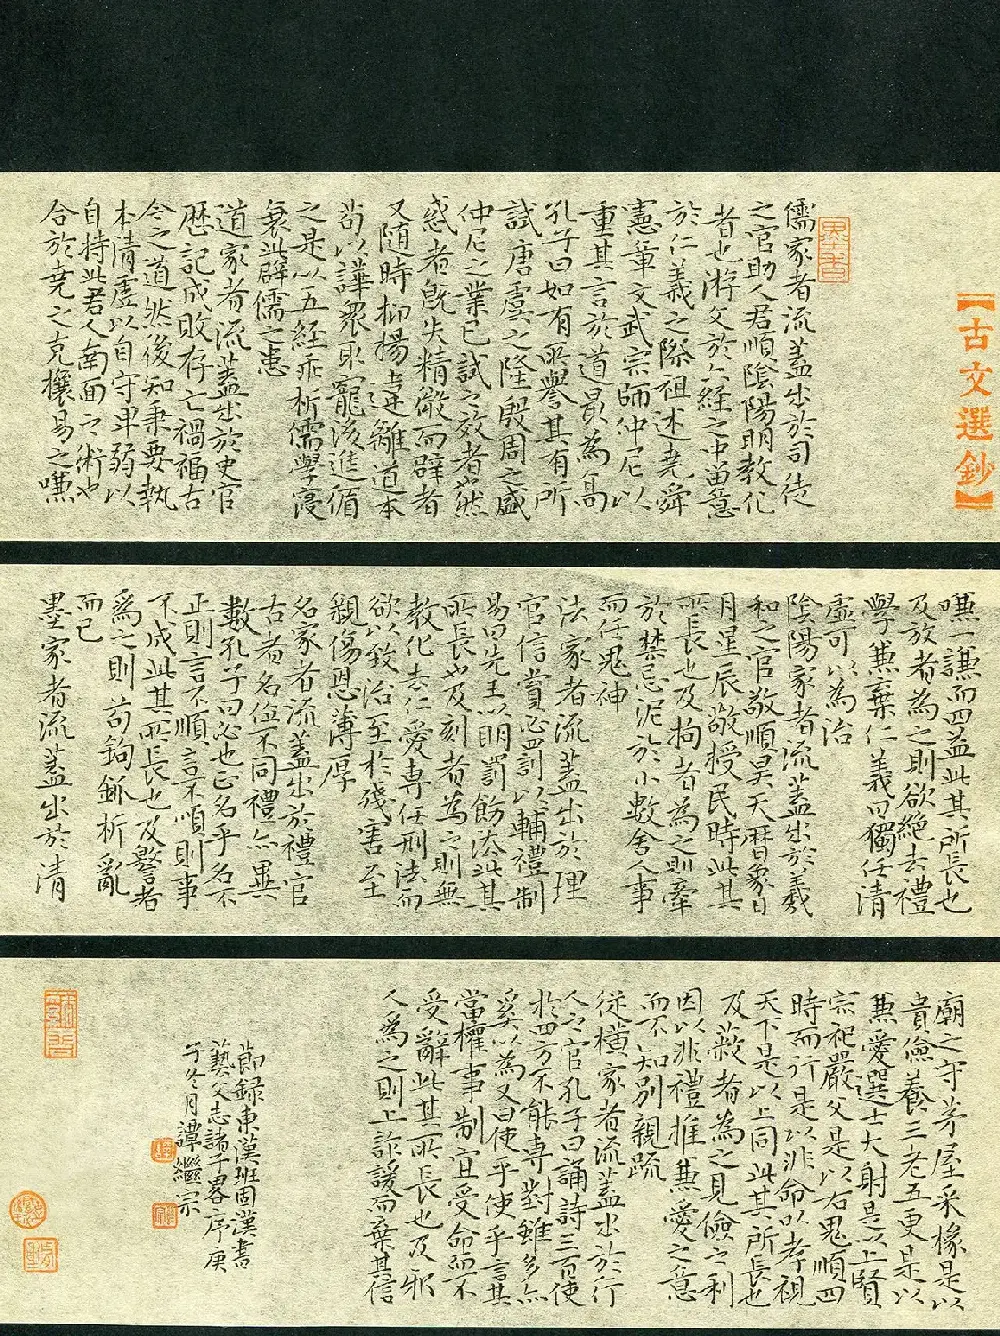 【古文選鈔】
儒家者流蓋出於司徒
之官助人君順陰陽明教化
者也游文於六經之中留意
於仁義之際祖述堯舜
憲章文武宗師仲尼以
重其言於道最為高
孔子曰如有所譽其有所
試唐虞之隆殷周之盛
仲尼之業已試之效者也然
惑者既失精微而辟者
又隨時抑揚違離道本
苟以譁眾取寵後進循
之是以五經乖析儒學寖
衰此辟儒之患
道家者流蓋出於史官
歷記成敗存亡禍福古
今之道然後知秉要執
本清虛以自守卑弱以
自持此君人南面之術也
合於堯之克攘易之嗛
嗛一謙而四益此其所長也
及放者為之則欲絕去禮
學兼棄仁義曰獨任清
虛可以為治
陰陽家者流蓋出於羲
和之官敬順昊天曆象日
月星辰敬授民時此其
所長也及拘者為之則牽
於禁忌泥於小數舍人事
而任鬼神
法家者流蓋出於理
官信賞必罰以輔禮制
易曰先王以明罰飭法此其
所長也及刻者為之則無
教化去仁愛專任刑法而
欲以致治至於殘害至
親傷恩薄厚
名家者流蓋出於禮官
古者名位不同禮亦異
數孔子曰必也正名乎名不
正則言不順言不順則事
不成此其所長也及警者
為之則苟鉤鈲析亂
而已
墨家者流蓋出於清
廟之守茅屋采椽是以
貴儉養三老五更是以
兼愛選士大射是以上賢
宗祀嚴父是以右鬼順四
時而行是以非命以孝視
天下是以上同此其所長也
及蔽者為之見儉之利
因以非禮推兼愛之意
而不知別親疏
從橫家者流蓋出於行
人之官孔子曰誦詩三百使
於四方不能專對雖多亦
奚以為又曰使乎使乎言其
當權事制宜受命而不
受辭此其所長也及邪
人為之則上詐諼而棄其信
節錄東漢班固漢書
藝文志諸子畧序庚
子冬月譚繼宗